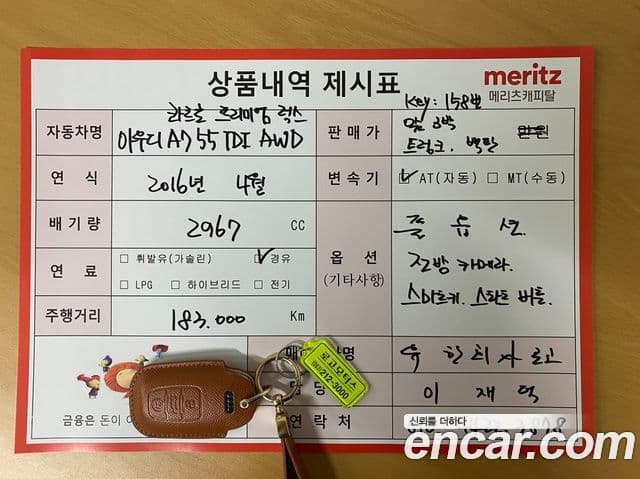 상품내역 제시표
meritz
메리츠캐피탈
콰트로 프리미엄 럭스
자동차명 아우디 A7 55 TDI AWD
Key: 158번
판매가
트렁크.
만원
연 식 2016년 4월
변속기 ☑ AT(자동) ☐ MT(수동)
배기량 2967 CC
옵 션
(기타사항)
풀 옵션.
전방 카메라.
스마트키. 스타트 버튼.
연 료 ☐ 휘발유(가솔린) ☑ 경유
☐ LPG ☐ 하이브리드 ☐ 전기
주행거리 183.000 Km
유한회사 로고
이 재 덕
연 락 처
금융은 돈이
로고모터스
212-3000
신뢰를 더하다
encar.com